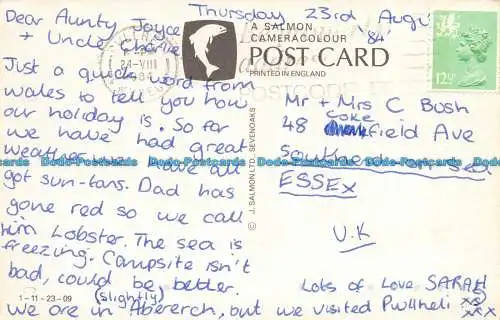 Thursday 23rd Augu
'84'
Dear Aunty Joyce
+ Uncle Charlie
Just a quick word from
Wales to tell you how
our holiday is. So far
we have had great
weather and have all
got sun-tans. Dad has
gone red so we call
him Lobster. The sea is
freezing. Campsite isn't
bad, could be better.
(slightly)
We are in Abererch, but we visited Pwllheli
Lots of Love SARAH
xxx
A SALMON
CAMERACOLOUR
POST CARD
PRINTED IN ENGLAND
24-VIII
1984
POSTCODE
12½P
© J. SALMON LTD. SEVENOAKS
Mr + Mrs C Bush
coke
48 field Ave
Southend on Sea
ESSEX
U.K
1-11-23-09
Postcards-Cartes-Postales